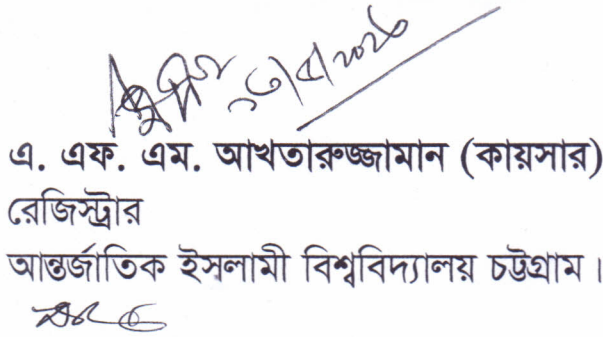 এ. এফ. এম. আখতারুজ্জামান (কায়সার)
রেজিস্ট্রার
আন্তর্জাতিক ইসলামী বিশ্ববিদ্যালয় চট্টগ্রাম।